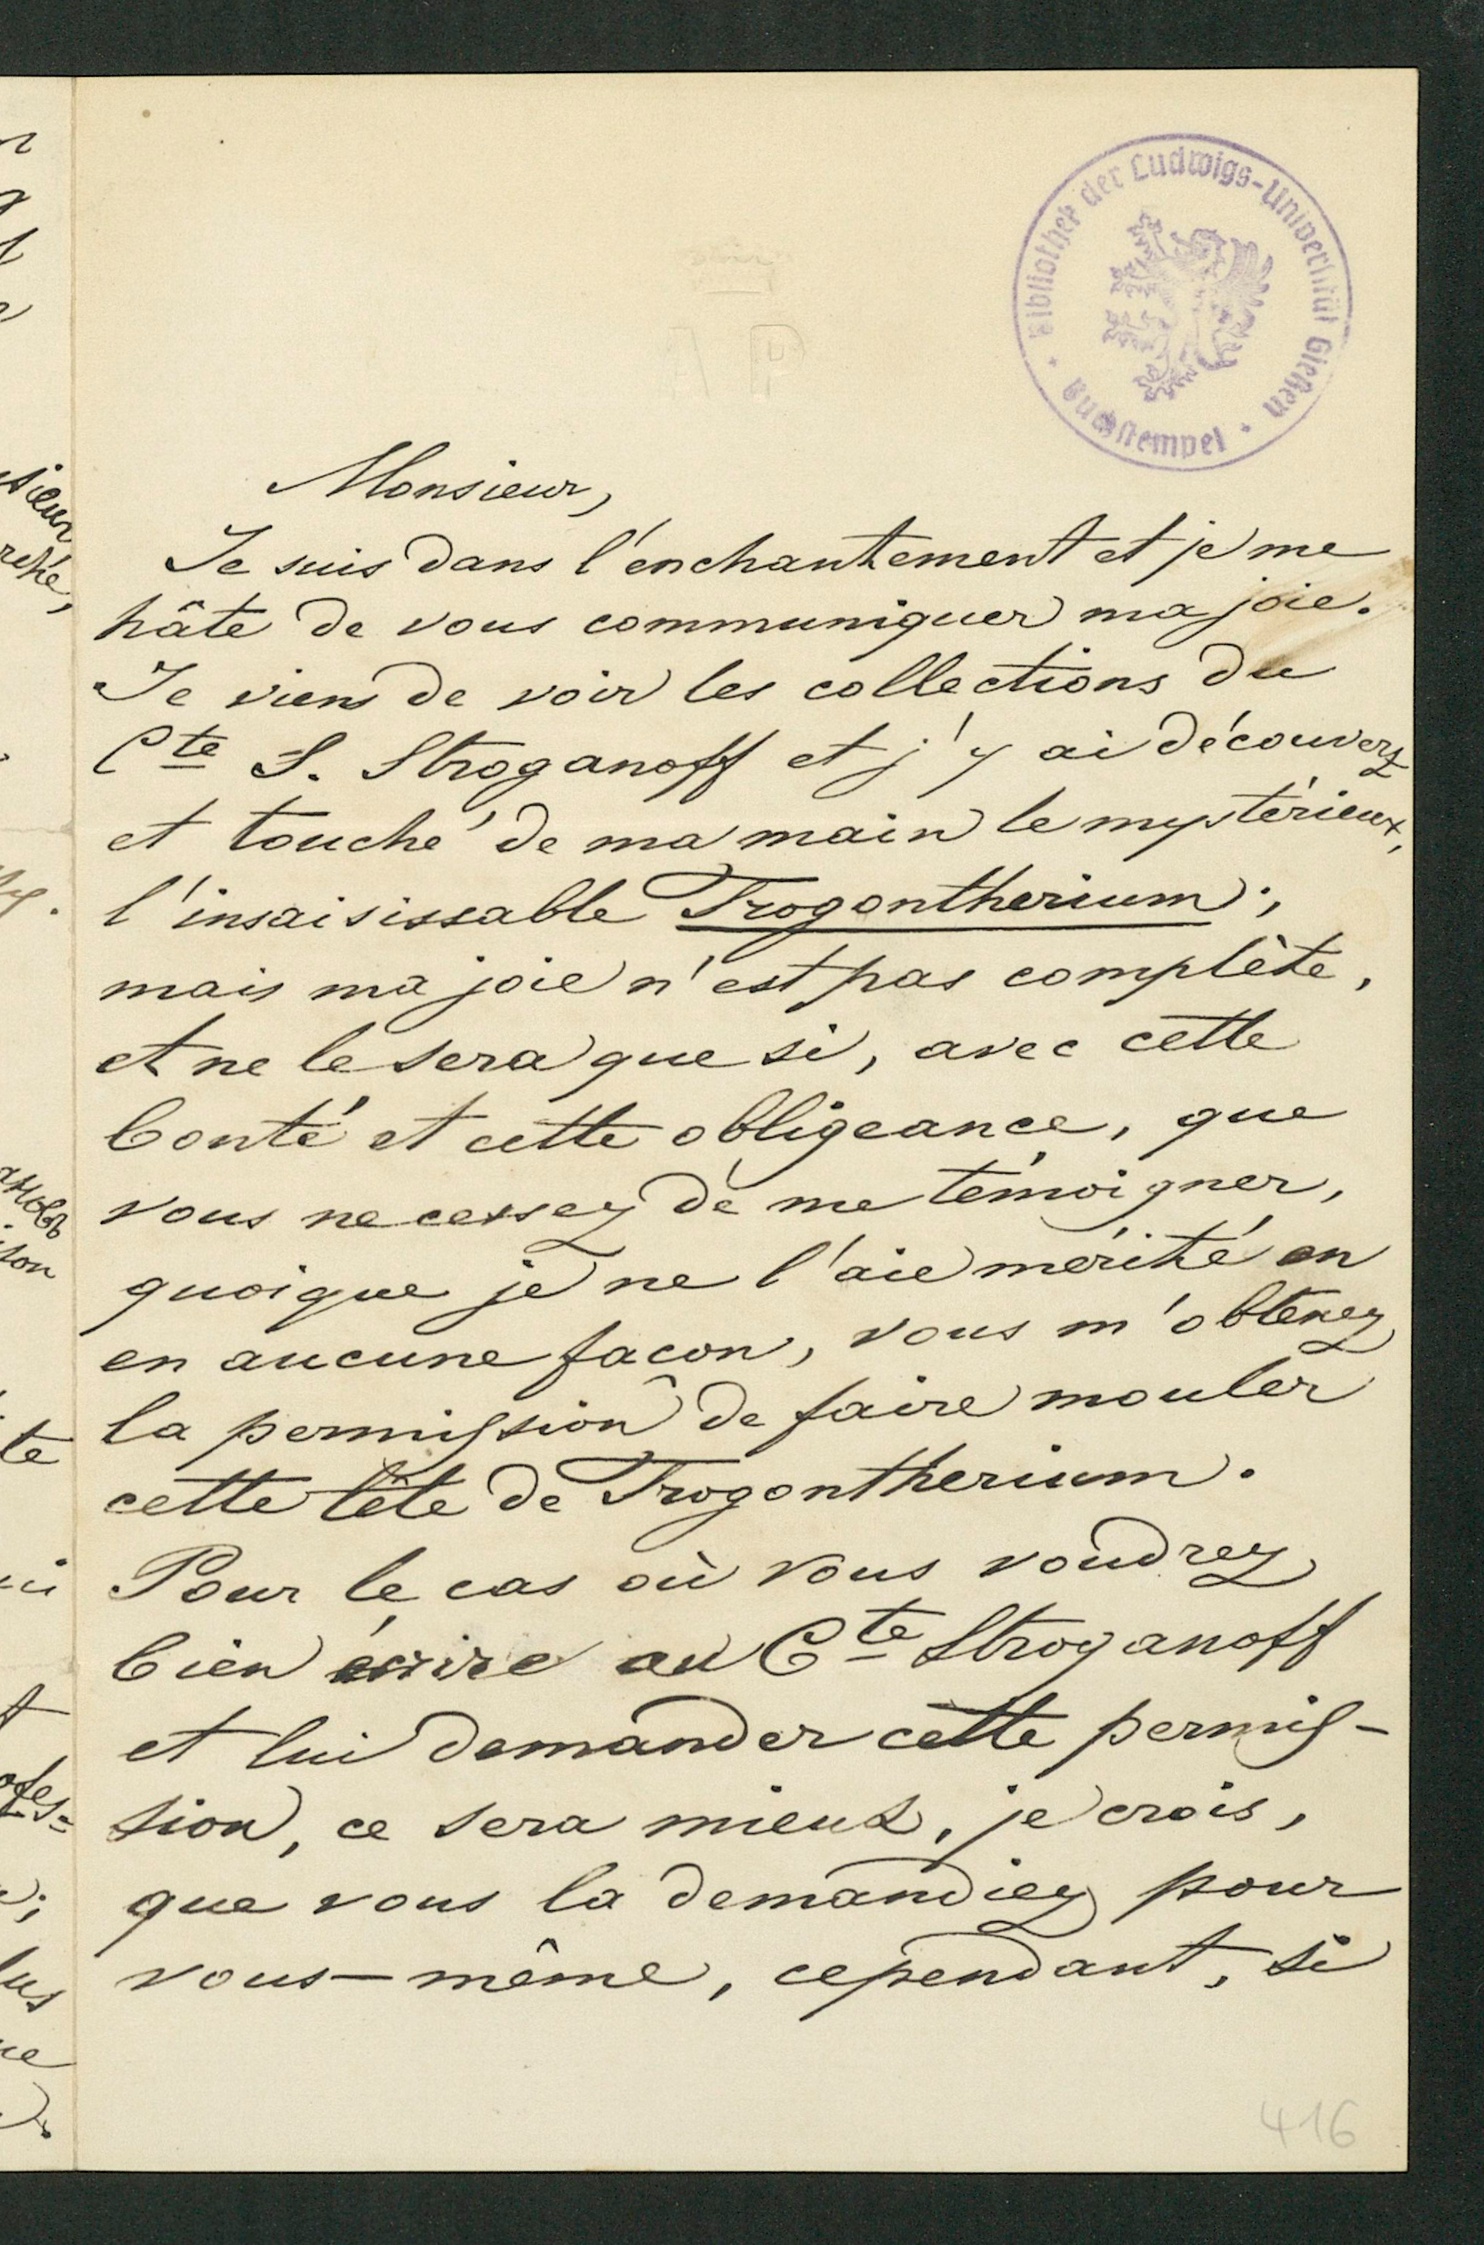 Bibliothek der Ludwigs-Universität Gießen
Buchstempel
Monsieur,
Je suis dans l'enchantement et je me
hâte de vous communiquer ma joie.
Je viens de voir les collections du
Cte S. Stroganoff et j'y ai découvert
et touché de ma main le mystérieux,
l'insaisissable Trogontherium;
mais ma joie n'est pas complète,
et ne le sera que si, avec cette
bonté et cette obligeance, que
vous ne cessez de me témoigner,
quoique je ne l'aie mérité en
en aucune façon, vous m'obtenez
la permission de faire mouler
cette tête de Trogontherium.
Pour le cas où vous voudrez
bien écrire au Cte Stroganoff
et lui demander cette permis-
sion, ce sera mieux, je crois,
que vous la demandiez pour
vous-même, cependant, si
416